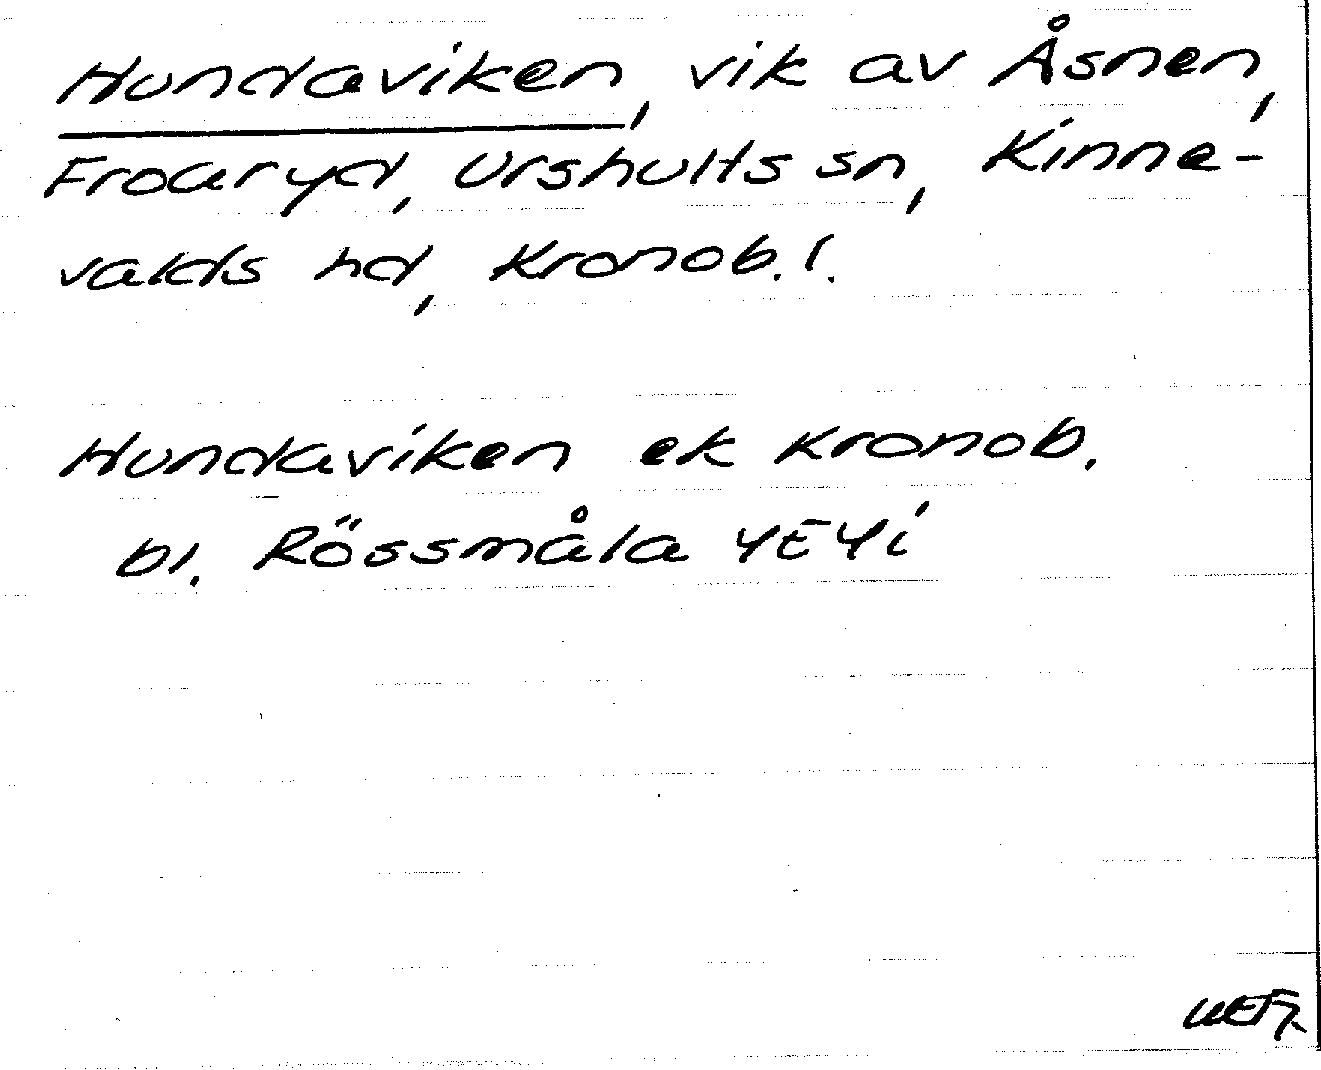 Hundaviken, vik av Åsnen,
Froaryd, Urshults sn, Kinne-
valds hd, Kronob. l.
Hundaviken ek Kronob.
bl. Rössmåla 4E4i